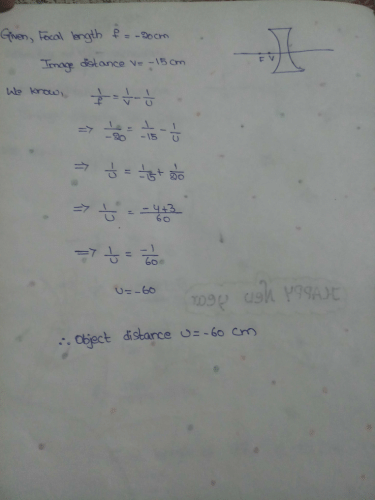 Given, Focal length f = -20cm
Image distance v = -15cm
We know, 1/f = 1/v - 1/u
=> 1/-20 = 1/-15 - 1/u
=> 1/u = 1/-15 + 1/20
=> 1/u = -4+3/60
=> 1/u = -1/60
u = -60
∴ Object distance u = -60 cm
F V
HAPPY New year